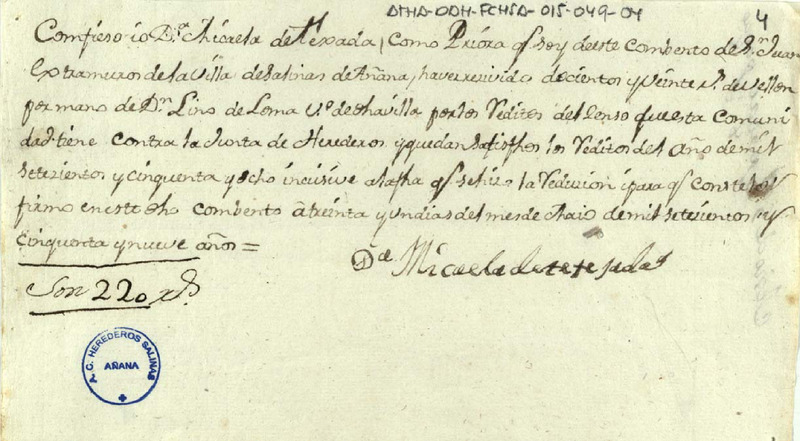 ATHA-DDH-FCHSA-015-049-04
4
Comfieso io Dª Micaela de Texada, como Priora q̃ soy deeste combento de Sn Juan
Extramuros de la Villa de Salinas de Añana, haver resivido docientos y veinte rs de vellon
por mano de Dn Lino de Loma vº de dha villa por los Reditos del Senso que esta Comuni
dad tiene contra la Junta de Herederos y quedan satisfhos los Reditos del Año de mil
setezientos y cinquenta y ocho incusive a la fha q̃ se hizo la Reducion i para q̃ conste lo
firmo en este dho combento â treinta y un dias del mes de Maio de mil setecientos y
cinquenta y nueve años =
Dª Micaela de texada
Son 220 rs
C. HEREDEROS SALINAS
AÑANA